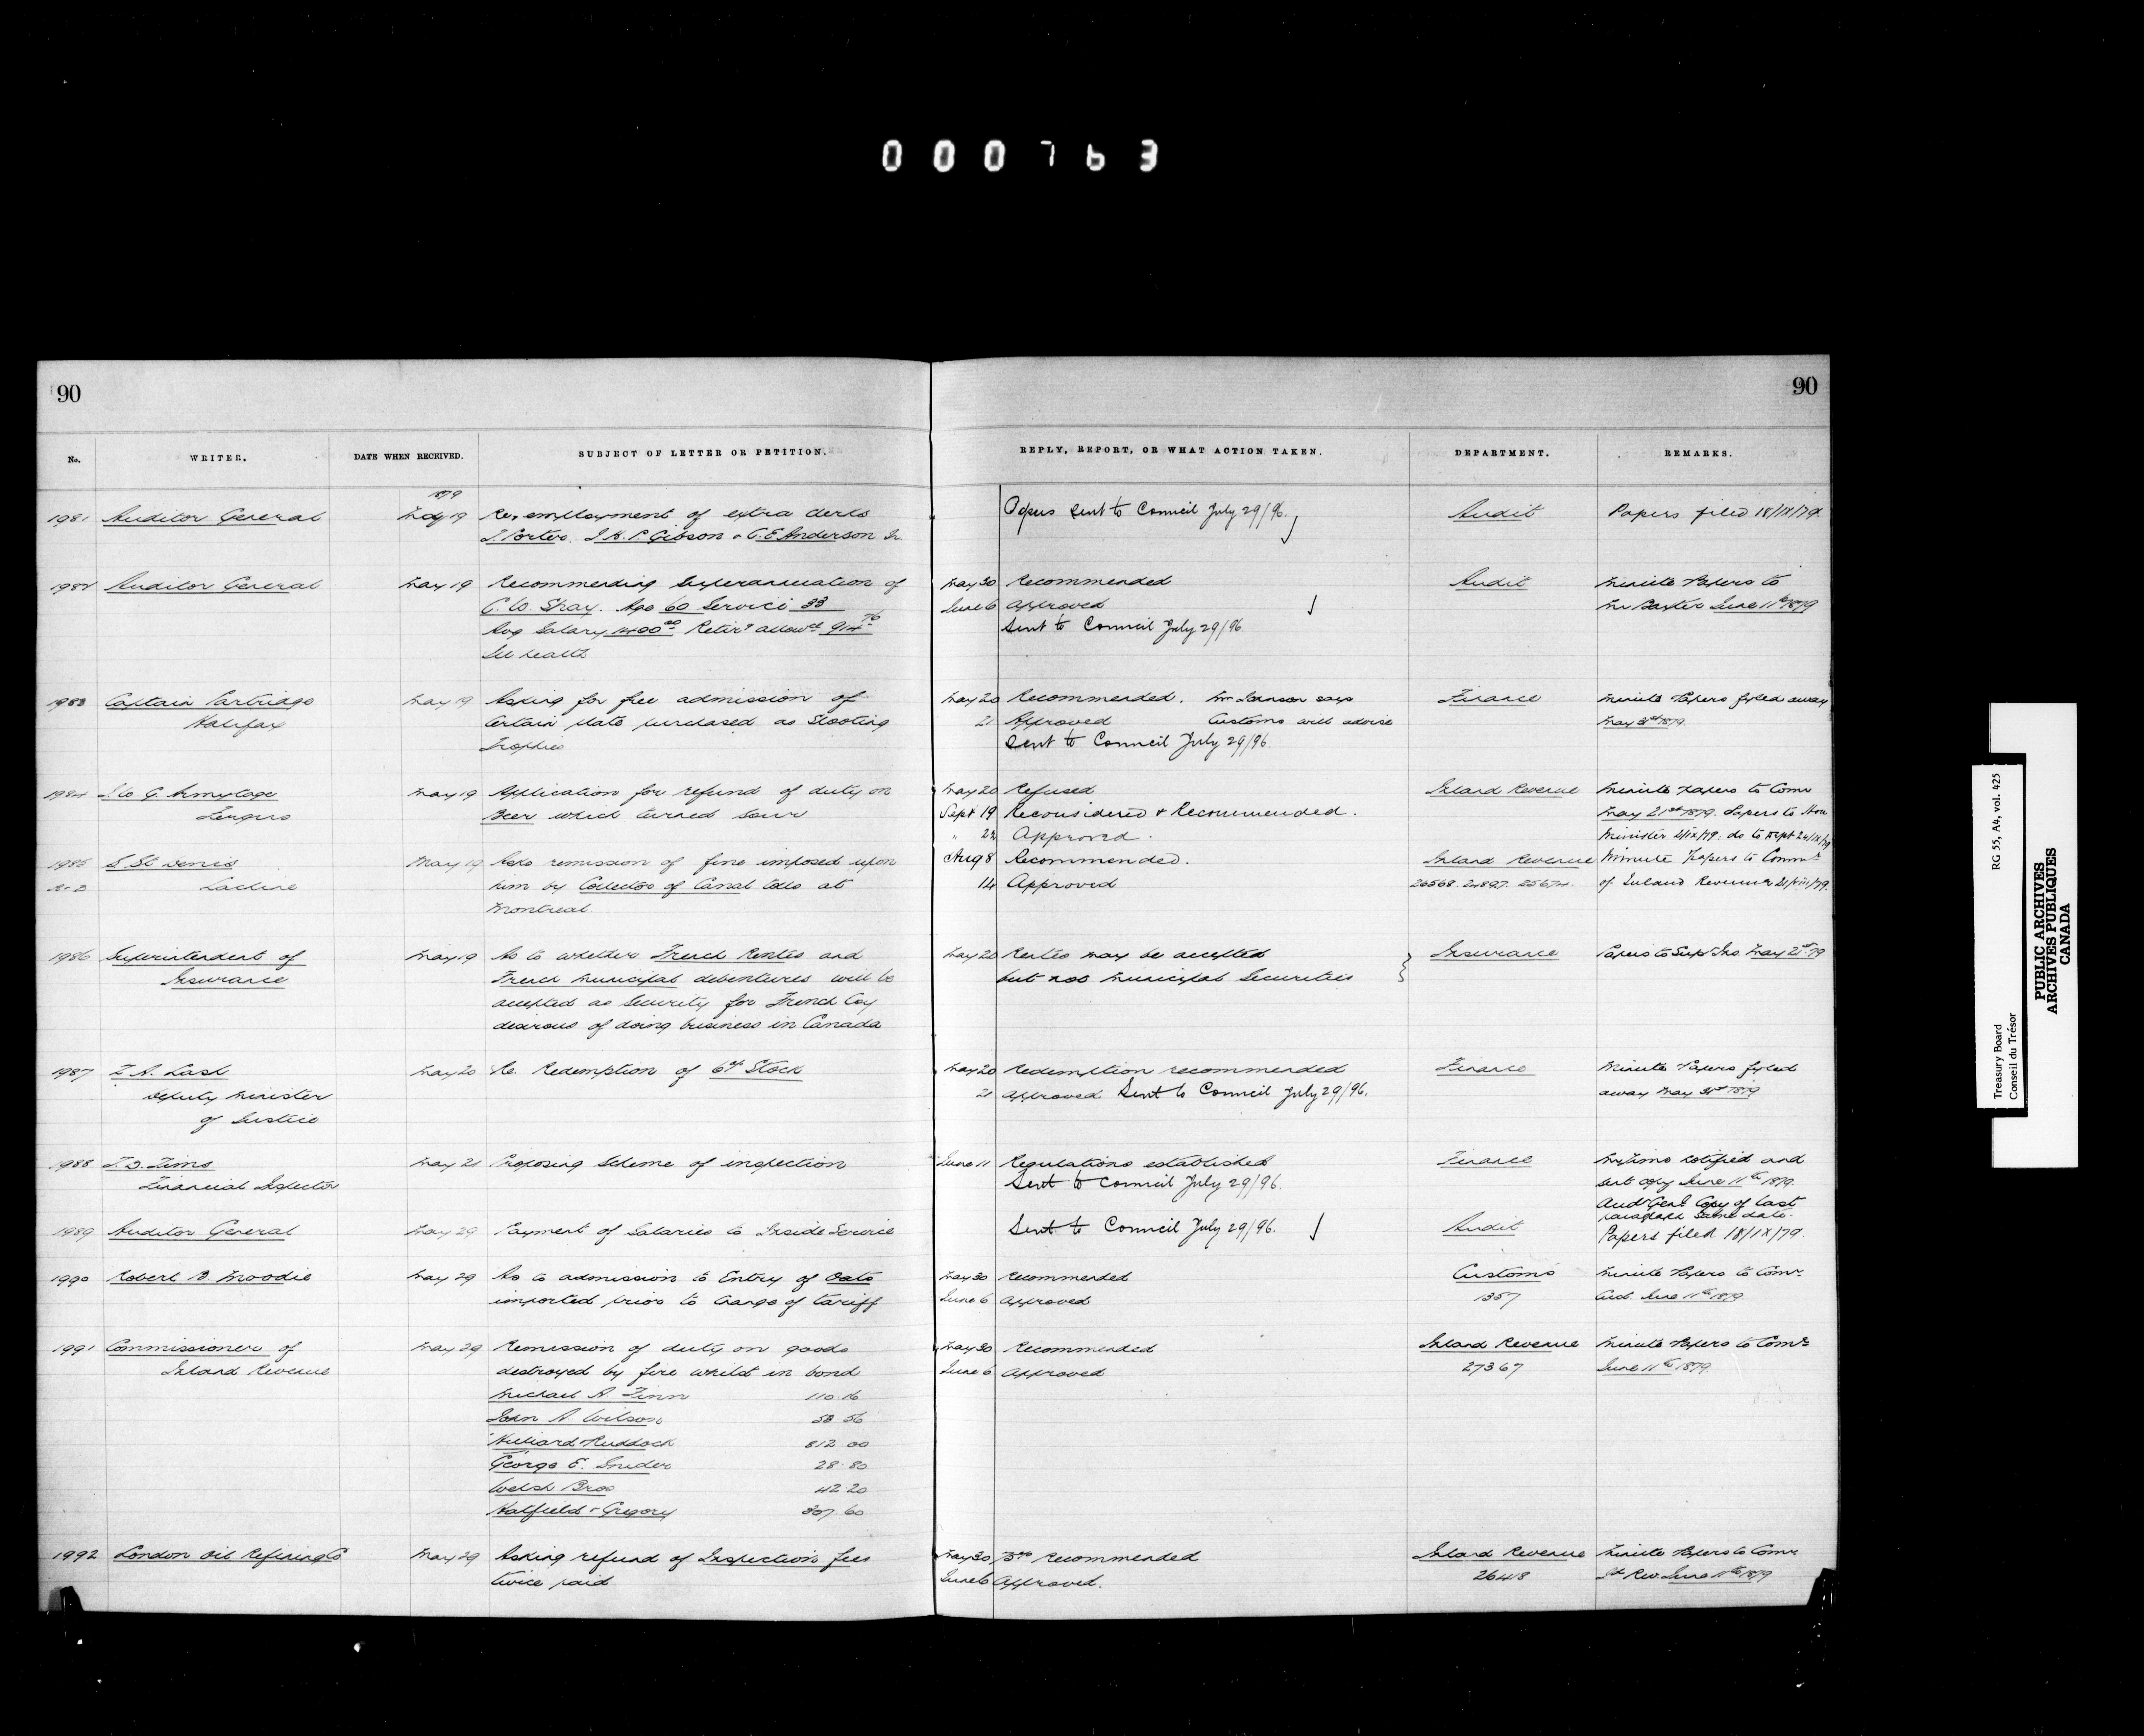 000763
90
90
No.
WRITER.
DATE WHEN RECEIVED.
SUBJECT OF LETTER OR PETITION.
REPLY, REPORT, OR WHAT ACTION TAKEN.
DEPARTMENT.
REMARKS.
1879
1981 Auditor General May 19 Re, employment of extra clerks Papers sent to Council July 29/96. Audit Papers filed 18/IX/79.
J. Porter. J. H. P. Gibson & C. E. Anderson Jr.
1982 Auditor General May 19 Recommending Superannuation of May 30 Recommended Audit Minute Papers to
C. W. Shay. Age 60 Service 33 June 6 Approved Mr Baxter June 11th 1879
Avg Salary 1400.00 Retirg allowce 914.76 Sent to Council July 29/96
Ill health
1983 Captain Partridge May 19 Asking for free admission of May 20 Recommended. Mr Johnson says Finance Minute Papers fyled away
Halifax Certain plate purchased as Shooting 21 Approved Customs will advise May 31st 1879.
Trophies Sent to Council July 29/96
1984 Armytage May 19 Application for refund of duty on May 20 Refused Inland Revenue Minute Papers to Comr
Fergus Beer which turned Sour Sept 19 Reconsidered & Recommended. May 21st 1879. Papers to Hon
" 22 Approved. Minister do to Dept
1985 S. St Denis May 19 Asks remission of fine imposed upon Aug 8 Recommended. Inland Revenue Minute Papers to Commr
Lachine him by Collector of Canal tolls at 14 Approved 26568. 24897. 25674. of Inland Revenue 21/viii/79.
Montreal
1986 Superintendent of May 19 As to whether French Rentes and May 20 Rentes may be accepted Insurance Papers to Supt Ins. May 21st 79
Insurance French Municipal debentures will be but not Municipal Securities
accepted as Security for French Coy
desirous of doing business in Canada
1987 Z. A. Lash May 20 Re. Redemption of 6% Stock May 20 Redemption recommended Finance Minute Papers fyled
Deputy Minister 21 Approved Sent to Council July 29/96. away May 31st 1879
of Justice
1988 T. D. Tims May 21 Proposing Scheme of inspection June 11 Regulations established Finance Mr Tims notified and
Financial Inspector Sent to Council July 29/96. sent copy June 11th 1879.
Audr Genl Copy of last
paragraph same date.
1989 Auditor General May 29 Payment of Salaries to Inside Service Sent to Council July 29/96. Audit Papers filed 18/IX/79.
1990 Robert B. Moodie May 29 As to admission to Entry of Oats May 30 Recommended Customs Minute Papers to Comr
imported prior to Change of tariff June 6 Approved 1357 Cust. June 11th 1879
1991 Commissioner of May 29 Remission of duty on goods May 30 Recommended Inland Revenue Minute Papers to Comr
Inland Revenue destroyed by fire whilst in bond June 6 Approved 27367 June 11th 1879
Michael A Finn 110.16
John A Wilson 58 56
Hilliard Ruddock 812.00
George E. Snider 28.80
Welsh Bros 42.20
Hatfield & Gregory 307.60
1992 London Oil Refining Co May 29 Asking refund of Inspection fees May 30 Recommended Inland Revenue Minute Papers to Comr
twice paid June 6 Approved. 26418 Id Rev June 11th 1879
RG 55, A4, vol. 425
Treasury Board
Conseil du Trésor
PUBLIC ARCHIVES
ARCHIVES PUBLIQUES
CANADA